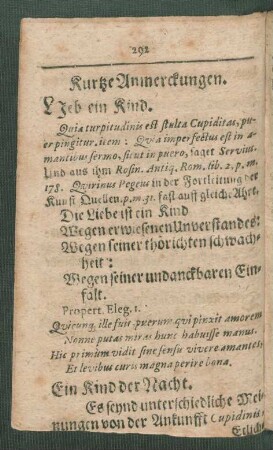 292
Kurtze Anmerckungen.
LJeb ein Kind.
Quia turpitudinis est stulta Cupiditas, pu-
er pingitur, item: Quia imperfectus est in a-
mantibus sermo, sicut in puero, saget Servius.
Und aus ihm Rosin. Antiq. Rom. lib. 2. p. m.
178. Quirinus Pegeus in der Fortleitung der
Kunst Quellen. p. m. 31. fast auff gleiche Ahrt.
Die Liebe ist ein Kind
Wegen erwiesenen Unverstandes:
Wegen seiner thörichten schwach-
heit:
Wegen seiner undanckbaren Ein-
falt.
Propert. Eleg. 1.
Quicunq; ille fuit, puerum qui pinxit amorem
Nonne putas miras hunc habuisse manus.
Hic primum vidit sine sensu vivere amantes,
Et levibus curis magna perire bona.
Ein Kind der Nacht.
Es seynd unterschiedliche Mei-
nungen von der Ankunfft Cupidinis,
Etliche